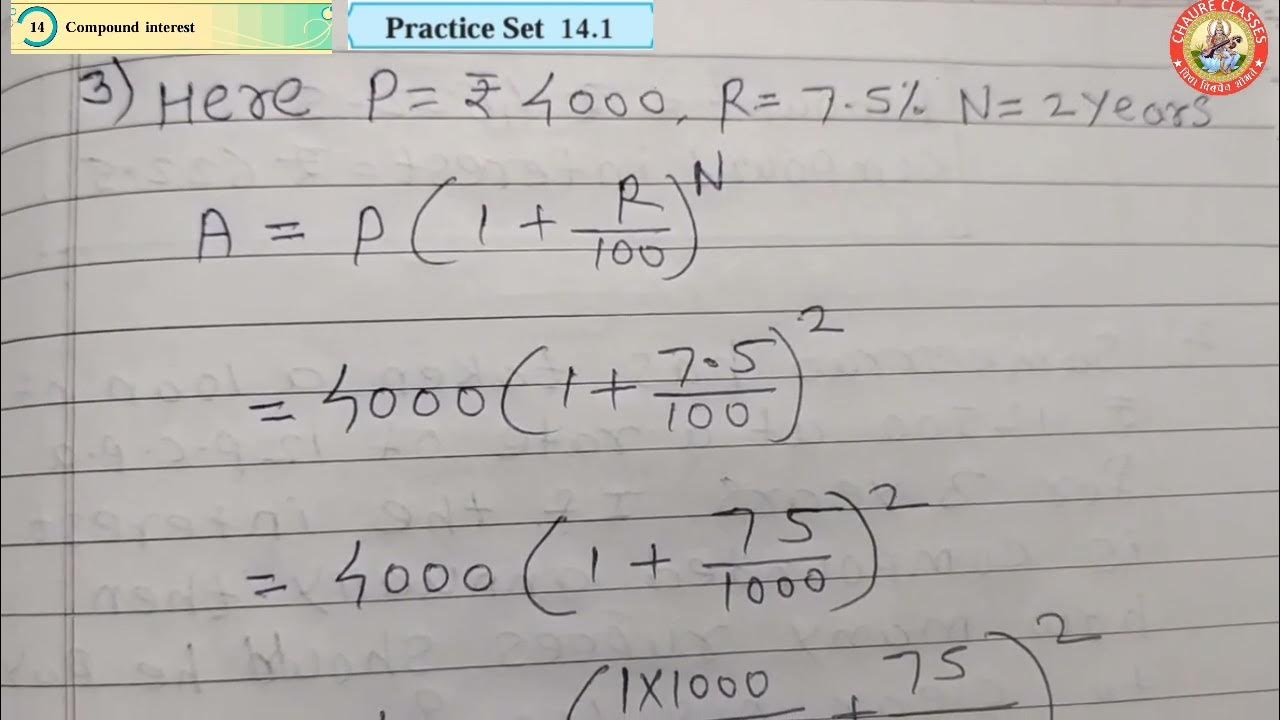 14 Compound interest
Practice Set 14.1
CHAURE CLASSES
3) Here P = ₹ 4000, R = 7.5% N = 2 years
A = P ( 1 + R/100 )^N
= 4000 ( 1 + 7.5/100 )^2
= 4000 ( 1 + 75/1000 )^2
( 1×1000 + 75 )^2